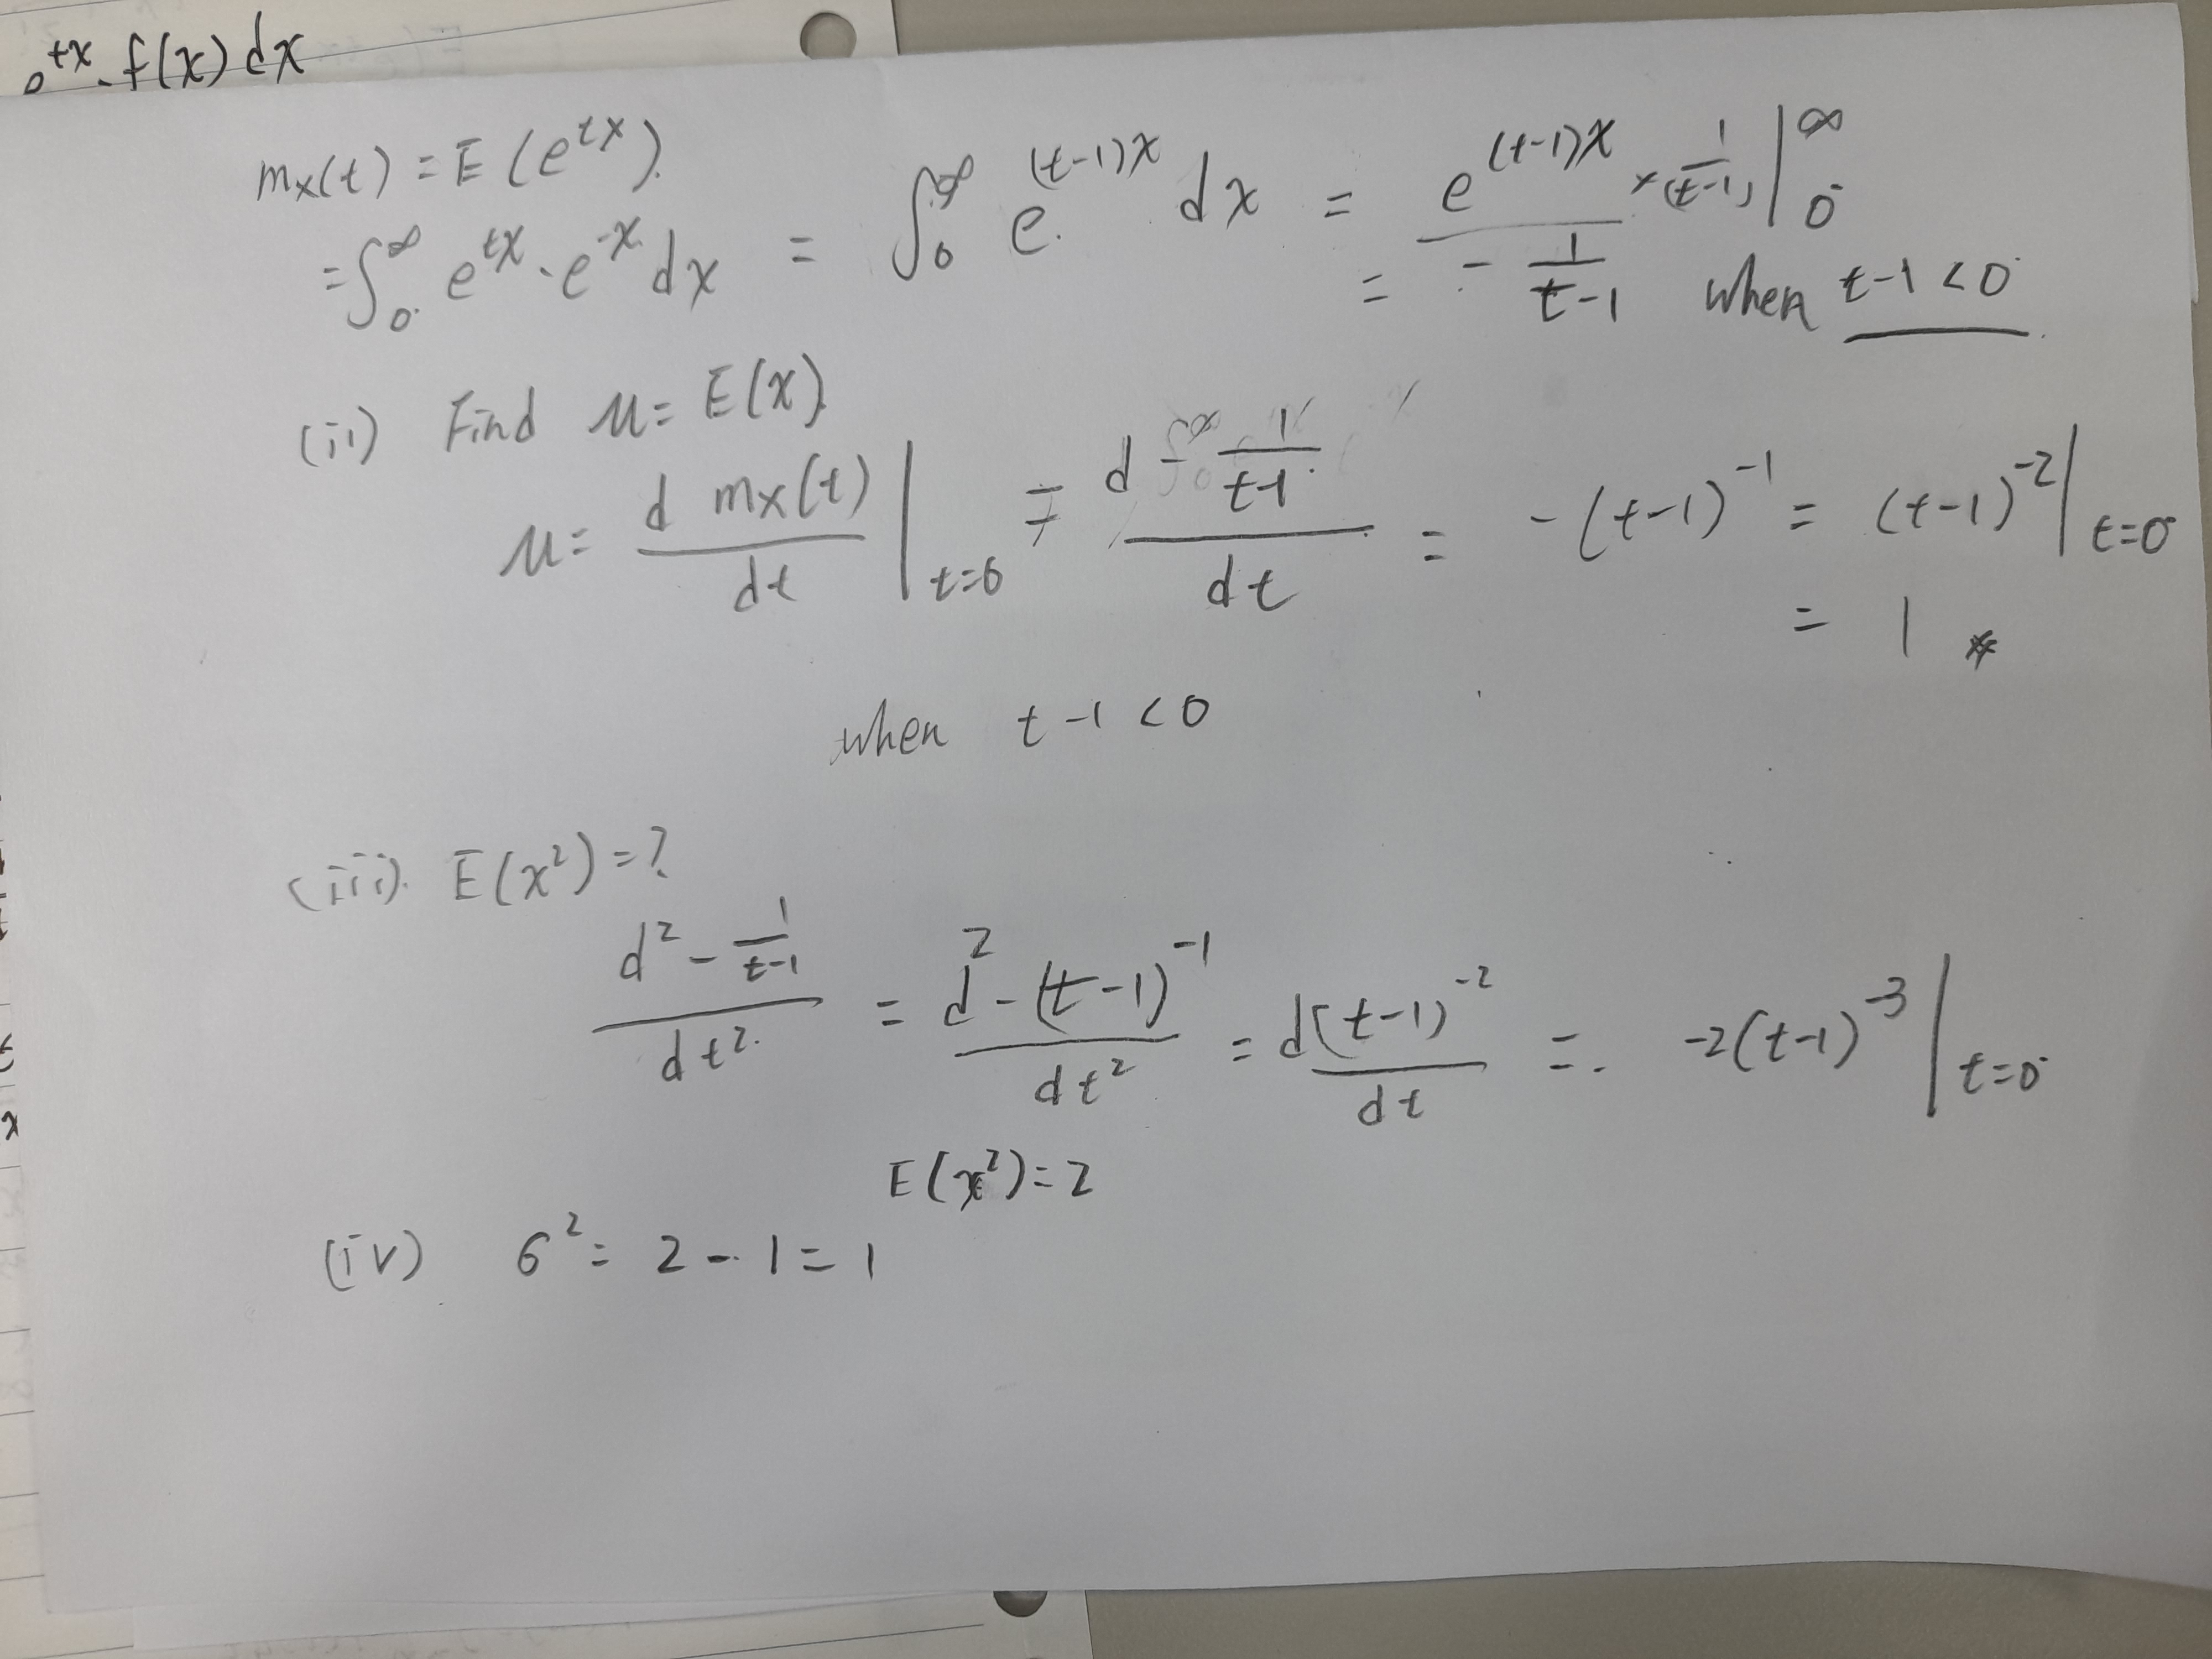 e^{tx}·f(x)dx
m_x(t) = E(e^{tx}).
= ∫_0^∞ e^{tx}·e^{-x}dx = ∫_0^∞ e^{(t-1)x} dx = e^{(t-1)x} × 1/(t-1) |_0^∞
= - 1/(t-1) when t-1<0
(ii) Find μ= E(x)
μ= d m_x(t)/dt |_{t=0} = d - 1/(t-1) / dt = -(t-1)^{-1} = (t-1)^{-2} |_{t=0}
= 1
when t-1<0
(iii). E(x²)=?
d² - 1/(t-1) / dt² = d² -(t-1)^{-1} / dt² = d(t-1)^{-2} / dt = -2(t-1)^{-3} |_{t=0}
E(x²)=2
(iv) 6² = 2-1=1